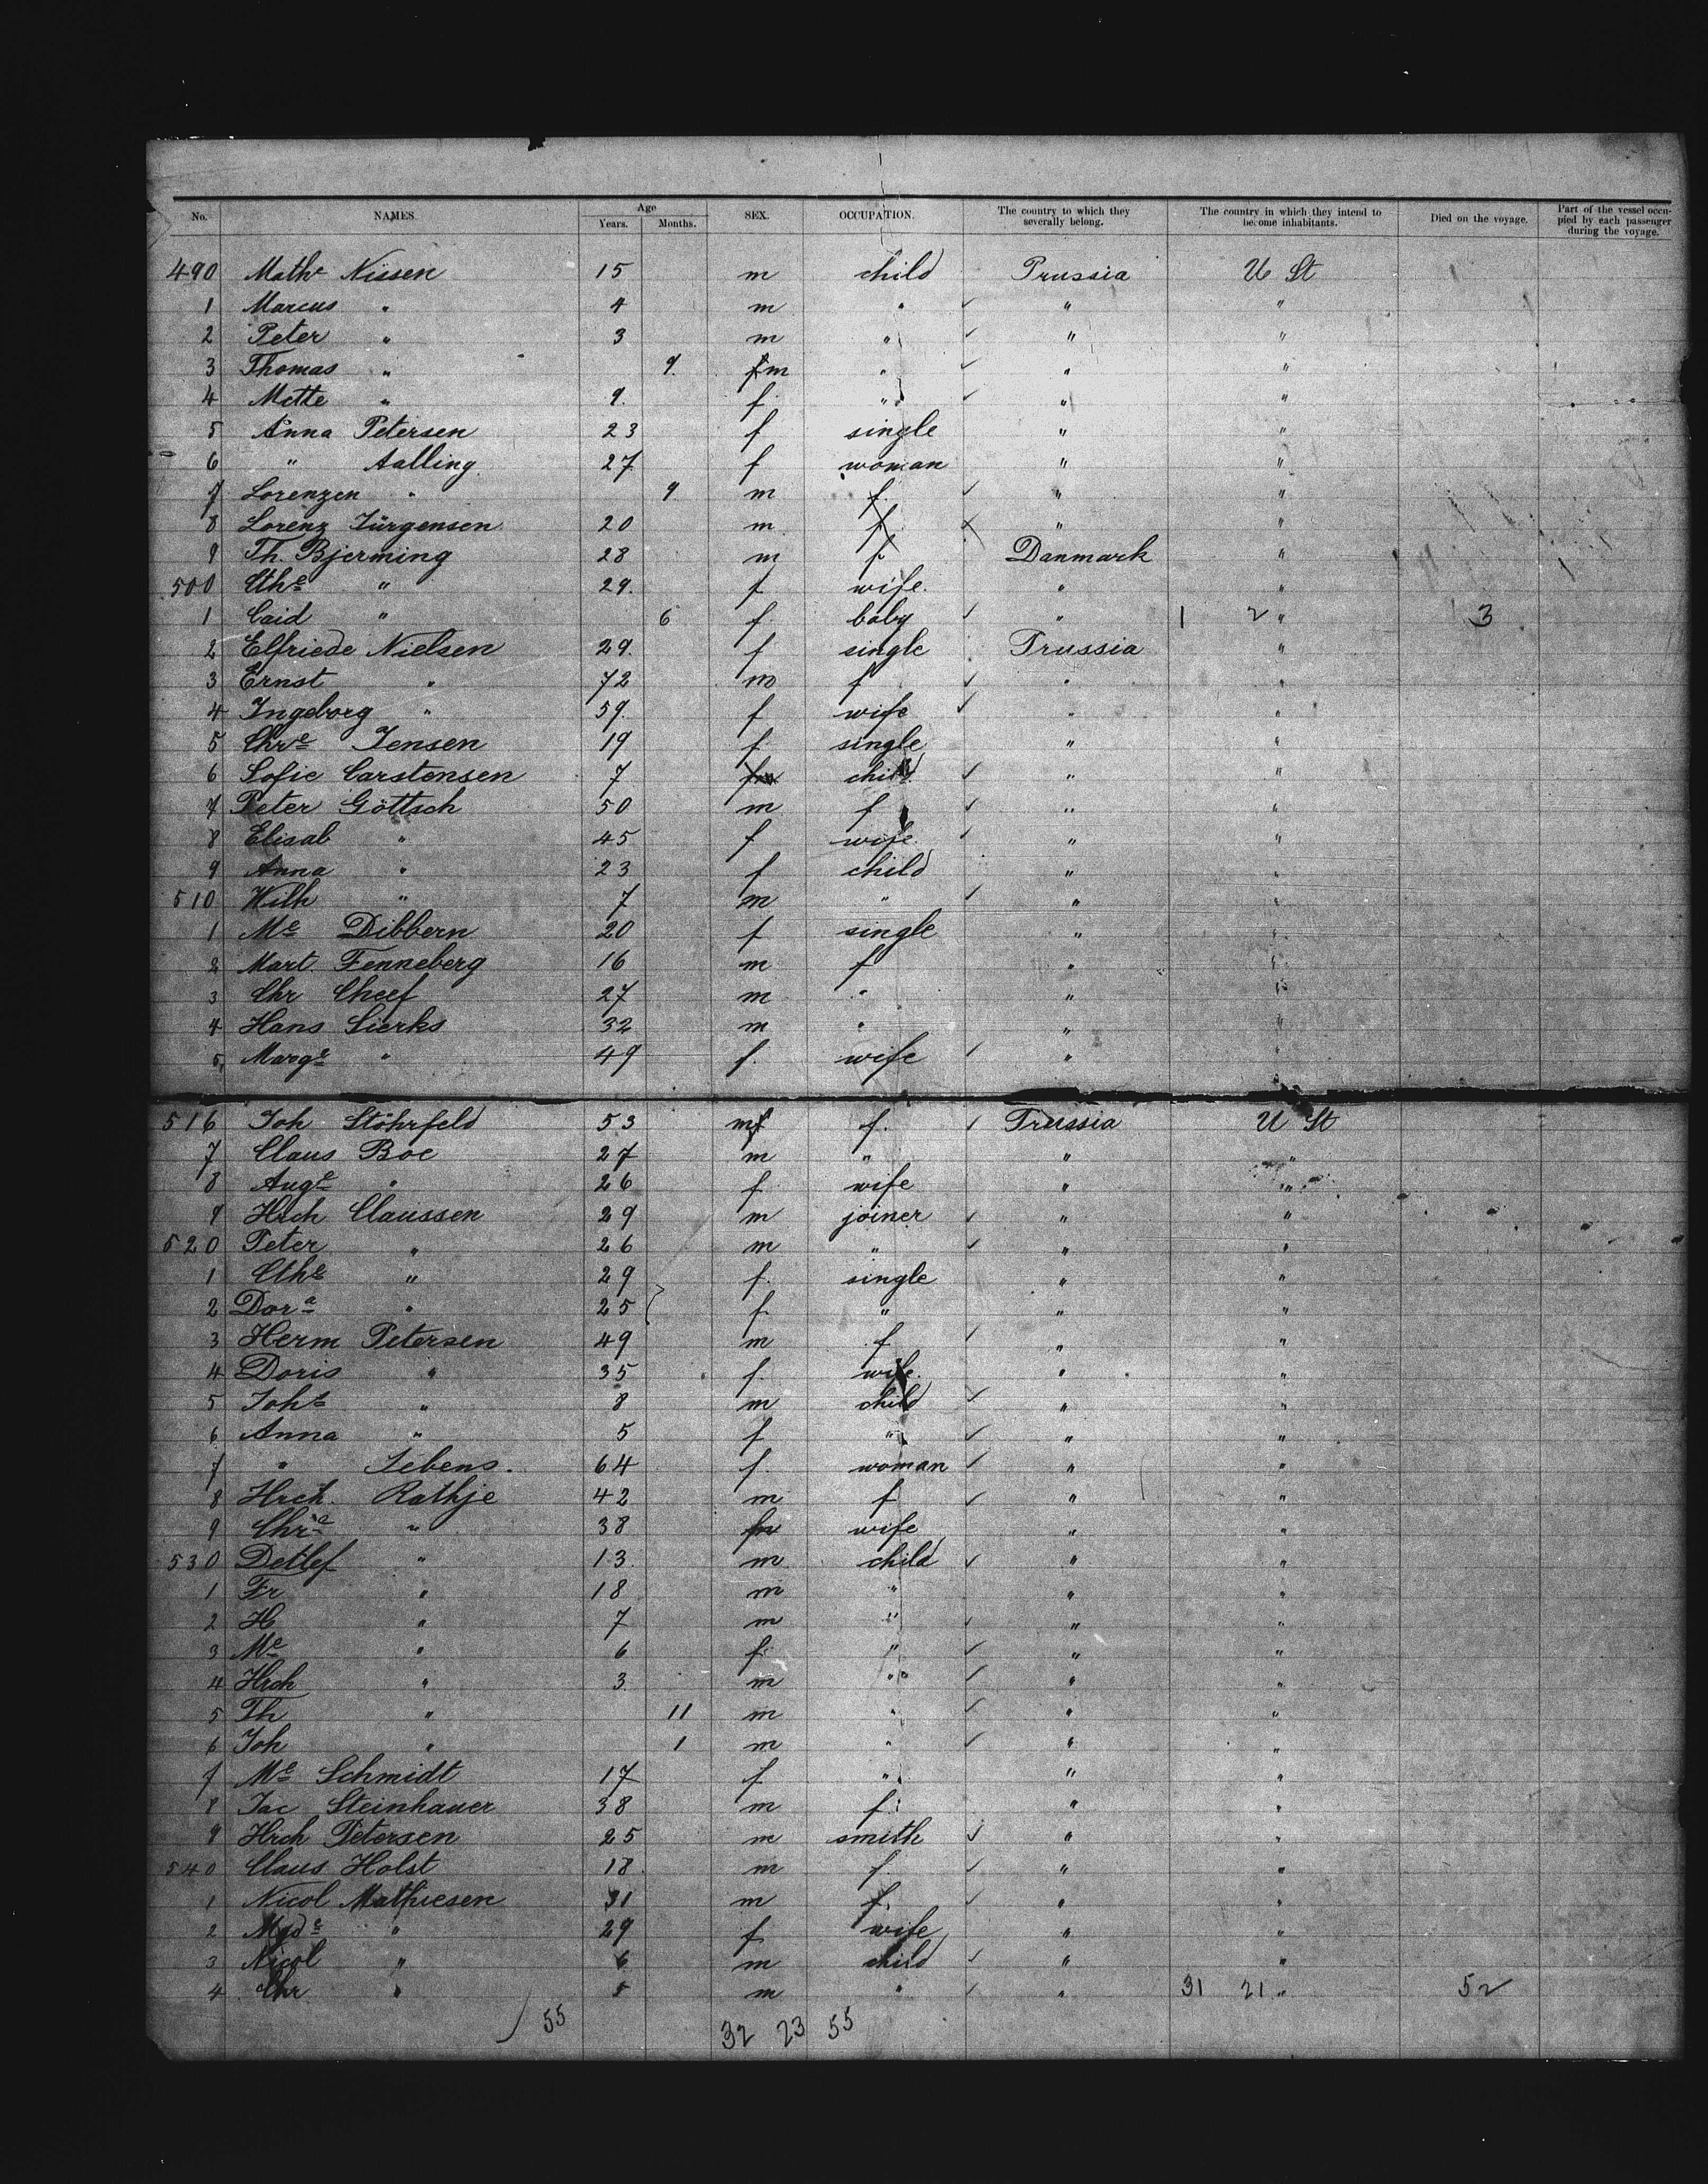 No. NAMES. Age Years. Months. SEX. OCCUPATION. The country to which they severally belong. The country in which they intend to become inhabitants. Died on the voyage. Part of the vessel occupied by each passenger during the voyage.
490 Mathe Nissen 15 m child Prussia U St
1 Marcus " 4 m " " "
2 Peter " 3 m " " "
3 Thomas " 9. m " " "
4 Mette " 9. f " " "
5 Anna Petersen 23 f single " "
6 " Aalling 27 f woman " "
7 Lorenzen " 9 m f. " "
8 Lorenz Jürgensen 20 m f " "
9 Th. Bjerming 28 m f Danmark "
500 Cthe " 29. f wife. " "
1 Caid " 6 f. baby " 1 2 " 3
2 Elfriede Nielsen 29. f single Prussia "
3 Ernst " 72 m f " "
4 Ingeborg " 59. f wife " "
5 Chre Jensen 19 f single " "
6 Sofie Carstensen 7 child " "
7 Peter Göttsch 50 m f " "
8 Elisab " 45 f wife. " "
9 Anna " 23 f child " "
510 Wilh " 7 m " " "
1 Me Dibbern 20 f single " "
2 Mart. Fenneberg 16 m f " "
3 Chr Cheef 27 m " " "
4 Hans Sierks 32 m " " "
5 Marge " 49 f. wife " "
516 Joh Stöhrfeld 53 m f. Prussia U St
7 Claus Boe 27 m " " "
8 Auge " 26 f wife " "
9 Hrch Claussen 29 m joiner " "
520 Peter " 26 m " " "
1 Cthe " 29 f. single " "
2 Dora " 25 f. " " "
3 Herm Petersen 49 m f " "
4 Doris " 35 f. wife. " "
5 Johs " 8 m child " "
6 Anna " 5 f " " "
7 " Sebens. 64 f. woman " "
8 Hrch. Rathje 42 m f " "
9 Chre " 38 wife " "
530 Detlef " 13. m child " "
1 Fr " 18 m " " "
2 H " 7 m " " "
3 Me " 6 f. " " "
4 Hrch " 3. m " " "
5 Th " 11 m " " "
6 Joh " 1 m " " "
7 Me Schmidt 17 f " " "
8 Jac Steinhauer 38 m f. " "
9 Hrch Petersen 25 m smith " "
540 Claus Holst 18. m f. " "
1 Nicol Mathiesen 31 m f. " "
2 " 29 f wife " "
3 Nicol " 6 m child " "
4 Chr " 5 m " " 31 21 " 52
55 32 23 55